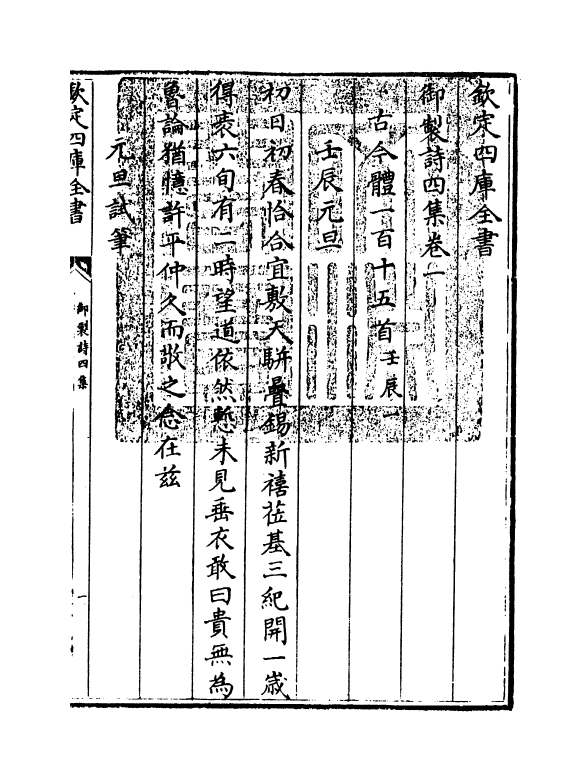 欽定四庫全書
御製詩四集卷一
古今體一百十五首壬辰一
壬辰元旦
初日初春恰合宜敷天駢疊錫新禧莅基三紀開一歲
得裘六旬有二時望道依然慙未見垂衣敢曰貴無為
魯論猶憶許平仲久而敬之念在兹
元旦試筆
欽定四庫全書
御製詩四集
一